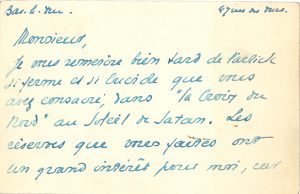 Bar-le-Duc 47 rue du
Monsieur,
Je vous remercie bien tard de l'article
si ferme et si lucide que vous
avez consacré, dans "la Croix du
Nord" au Soleil de Satan. Les
réserves que vous faites ont
un grand intérêt pour moi, car